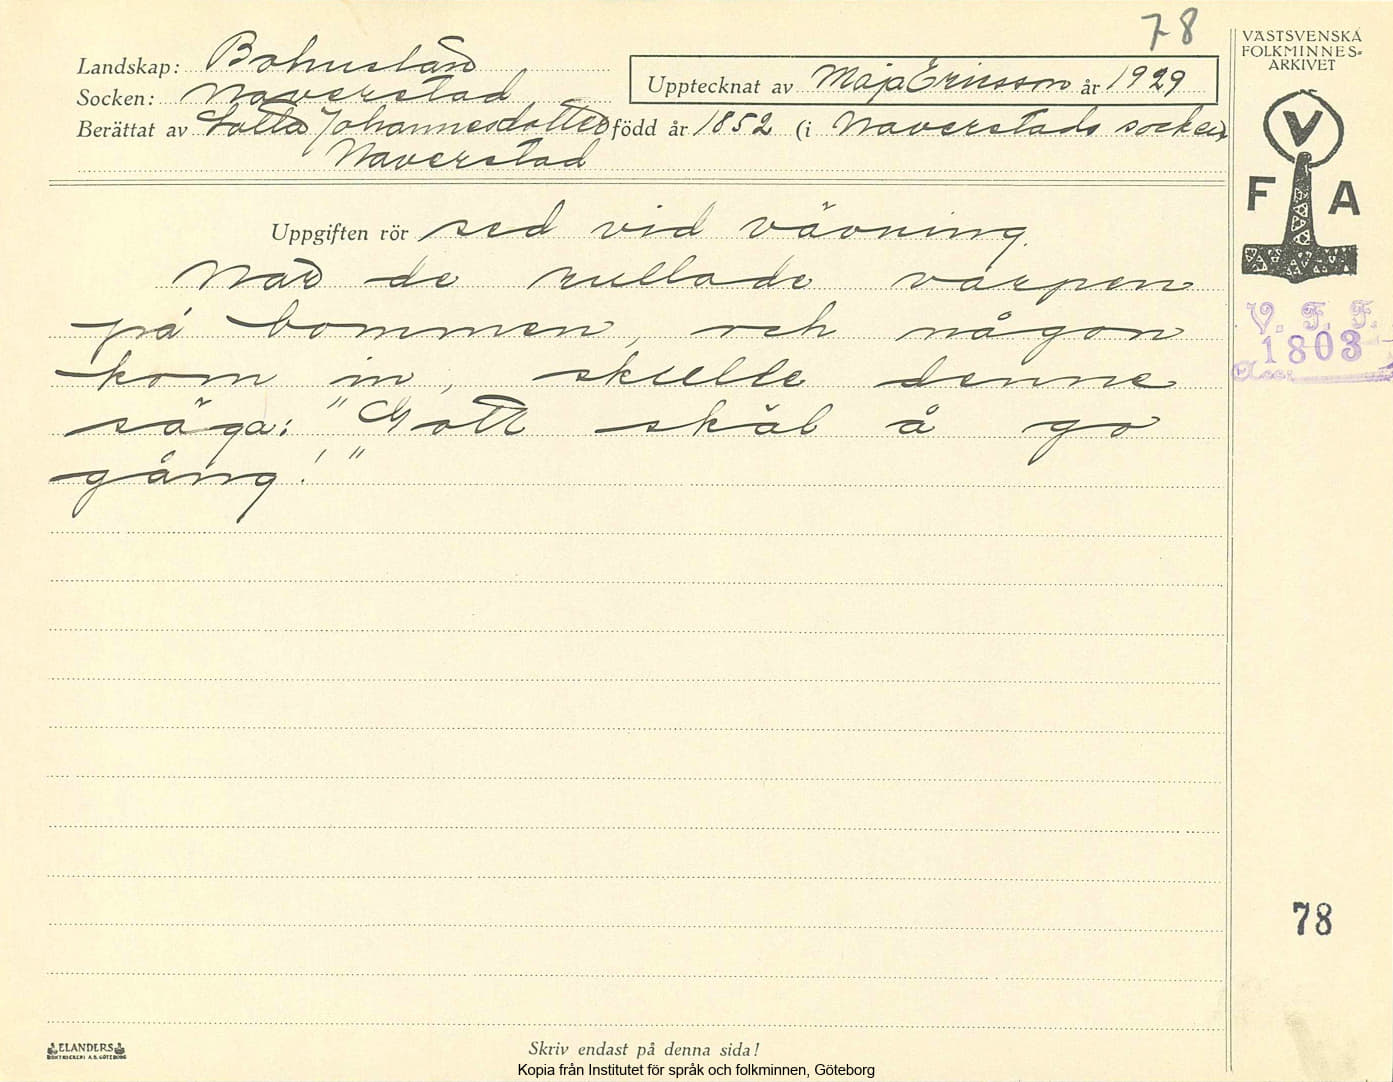 78
VÄSTSVENSKA
FOLKMINNES=
ARKIVET
Landskap: Bohuslän
Upptecknat av Maja Ericsson år 1929
Socken: Naverstad
Berättat av Lotta Johannesdotter född år 1852 (i Naverstads socken)
Naverstad
V
F A
Uppgiften rör sed vid vävning.
När de rullade varpen
på bommen, och någon
kom in, skulle denne
säga: "Gott skäl å go
gång!"
V. F. F.
1803
Acc:
78
ELANDERS
BOKTRYCKERI A.B. GÖTEBORG
Skriv endast på denna sida!
Kopia från Institutet för språk och folkminnen, Göteborg